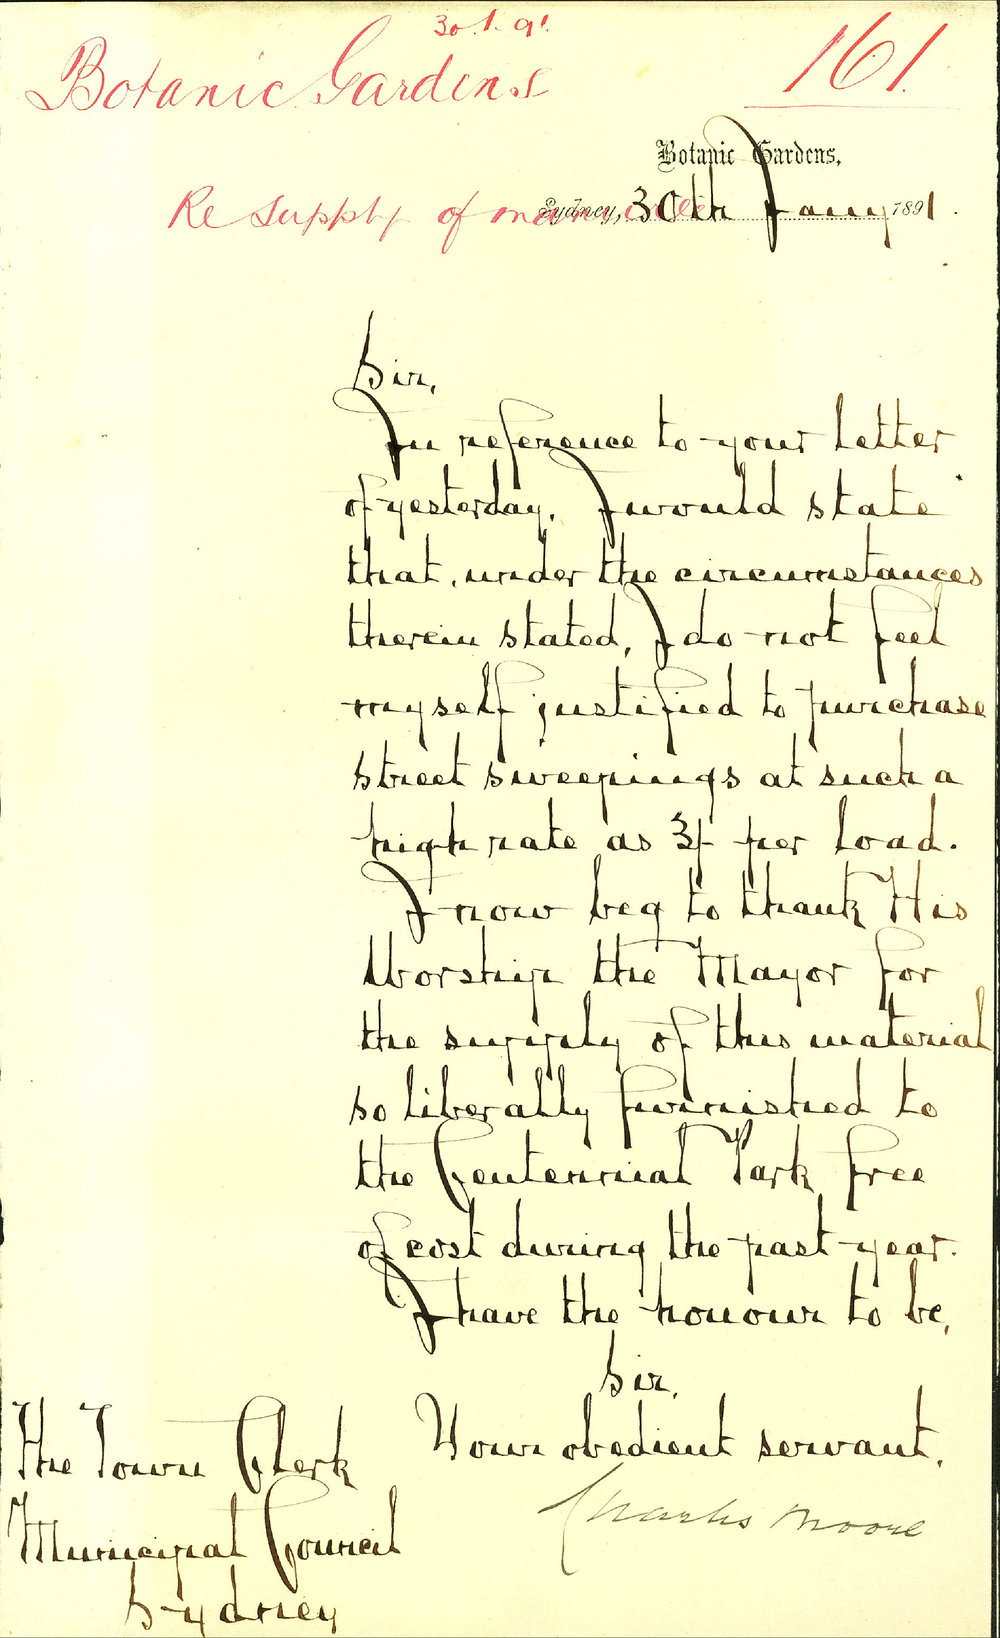 30.1.91.
Botanic Gardens
161
Botanic Gardens,
Re supply of manure
Sydney, 30th Jany 1891.
Sir,
In reference to your letter
of yesterday, I would state
that, under the circumstances
therein stated, I do not feel
myself justified to purchase
street sweepings at such a
high rate as 3/- per load.
I now beg to thank His
Worship the Mayor for
the supply of this material
so liberally furnished to
the Centennial Park free
of cost during the past year.
I have the honour to be,
Sir,
Your obedient servant,
Charles Moore
The Town Clerk
Municipal Council
Sydney